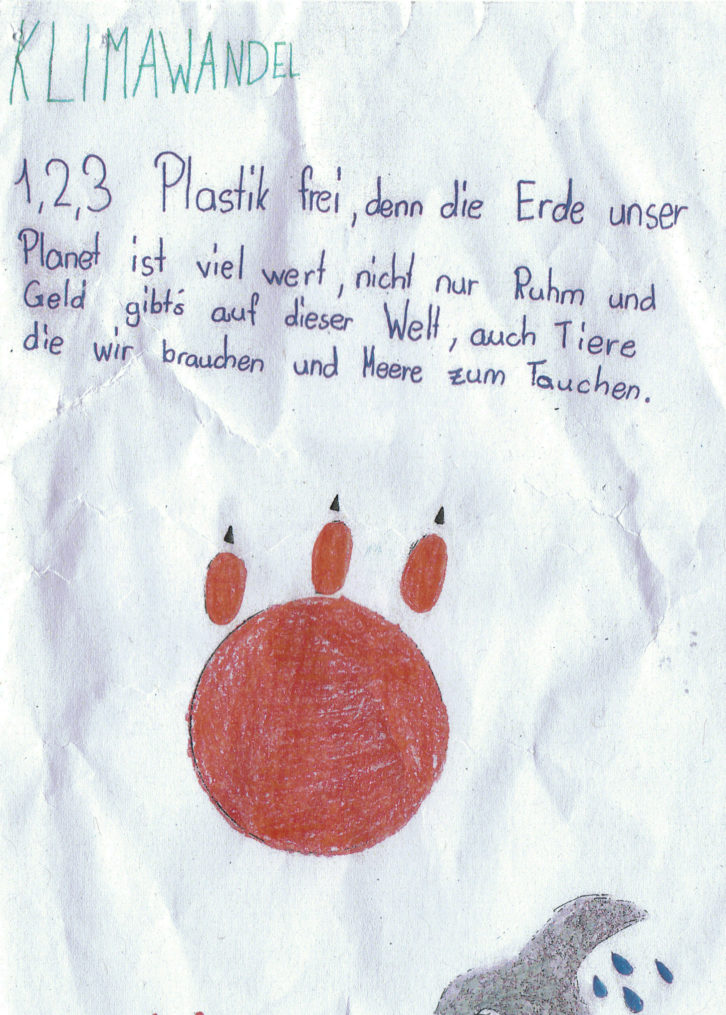 KLIMAWANDEL
1,2,3 Plastik frei, denn die Erde unser
Planet ist viel wert, nicht nur Ruhm und
Geld gibt´s auf dieser Welt, auch Tiere
die wir brauchen und Meere zum Tauchen.